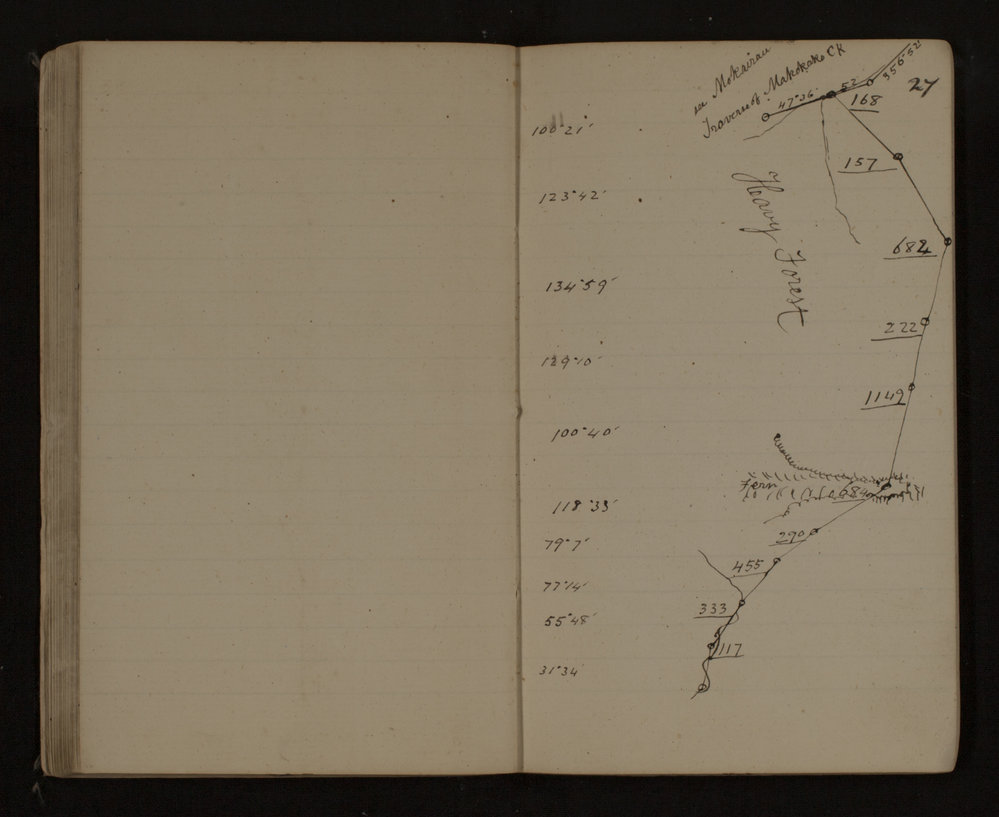 see Mokairau
Traverse of Makokako CK
27
47°36'
52
356°52'
168
100°21'
157
123°42'
Heavy Forest
682
134°59'
222
129°10'
1149
100°40'
Fern
684
118°33'
290
79°7'
455
77°14'
333
55°48'
117
31°34